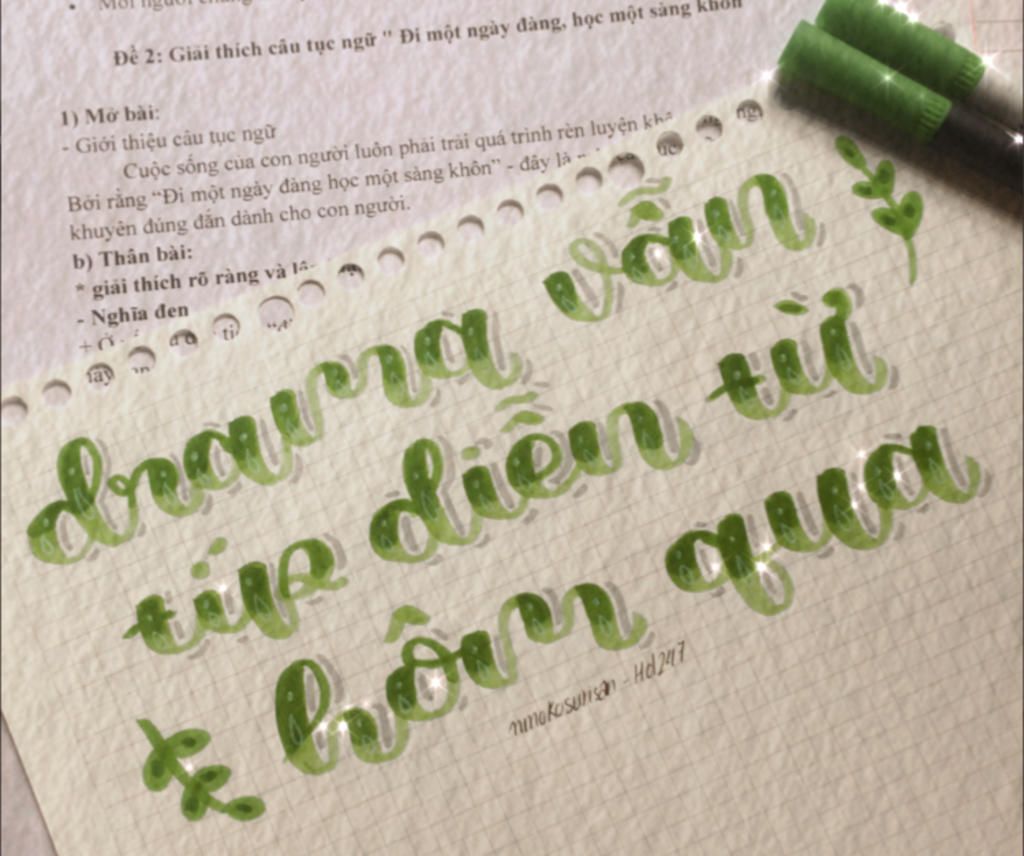 Đề 2: Giải thích câu tục ngữ " Đi một ngày đàng, học một sàng khôn
1) Mở bài:
- Giới thiệu câu tục ngữ
Cuộc sống của con người luôn phải trải quá trình rèn luyện
Bởi rằng “Đi một ngày đàng học một sàng khôn” - đây là
khuyên đúng đắn dành cho con người.
b) Thân bài:
* giải thích rõ ràng và
- Nghĩa đen
drama vẫn
típ diễn từ
hôm qua
nmokosumsan - Hd247